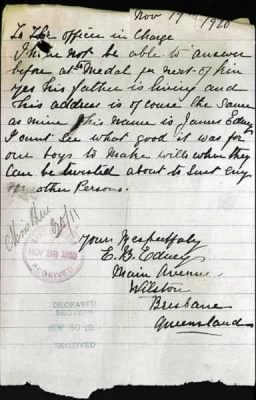 Nov 19th 1920
To The office in Charge
I have not be able to answer
before as to Medal for next of kin
yes his father is living and
His address is of course the same
as mine His name is James Edney
I cant see what good it was for
our boys to make wills when they
can be twisted about to suit eny
other Persons.
20/11
NOV 30 1920
RECEIVED
Yours Respectfuly
E. B. Edney
Main Avenue
Wilston
Brisbane
Queensland
DECEASED
SECTION
NOV 30 19
RECEIVED